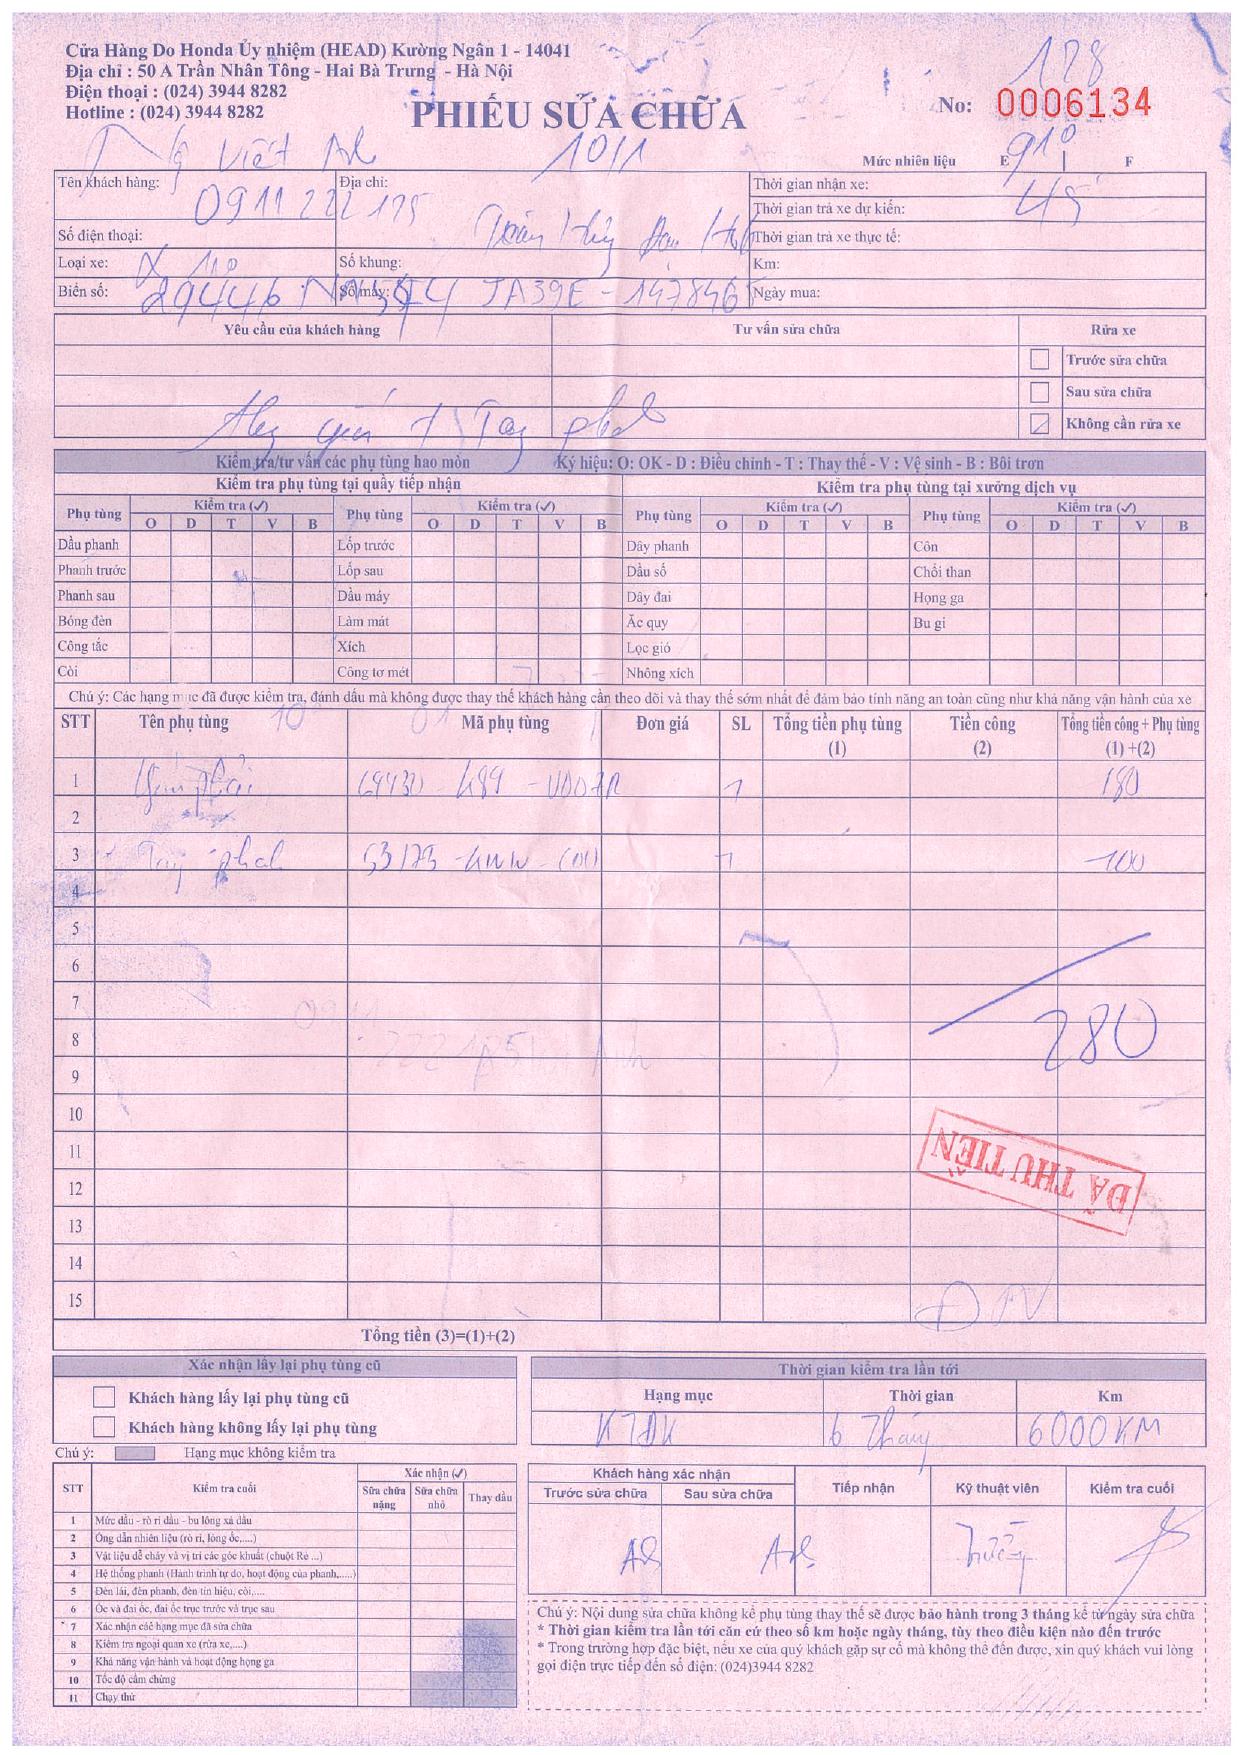 Cửa Hàng Do Honda Ủy nhiệm (HEAD) Kường Ngân 1 - 14041
Địa chỉ : 50 A Trần Nhân Tông - Hai Bà Trưng - Hà Nội
Điện thoại : (024) 3944 8282
Hotline : (024) 3944 8282
PHIẾU SỬA CHỮA
128
No: 0006134
Việt 10/1
Mức nhiên liệu E F
Tên khách hàng: Địa chỉ: Thời gian nhận xe:
0911222175 Thời gian trả xe dự kiến:
Số điện thoại: Thời gian trả xe thực tế:
Loại xe: Số khung: Km:
Biển số: Số máy: JA39E - 1478465 Ngày mua:
Yêu cầu của khách hàng Tư vấn sửa chữa Rửa xe
Trước sửa chữa
Sau sửa chữa
Không cần rửa xe
Kiểm tra/tư vấn các phụ tùng hao mòn Ký hiệu: O: OK - D : Điều chỉnh - T : Thay thế - V : Vệ sinh - B : Bôi trơn
Kiểm tra phụ tùng tại quầy tiếp nhận Kiểm tra phụ tùng tại xưởng dịch vụ
Phụ tùng Kiểm tra (✓) Phụ tùng Kiểm tra (✓) Phụ tùng Kiểm tra (✓) Phụ tùng Kiểm tra (✓)
O D T V B O D T V B O D T V B O D T V B
Dầu phanh Lốp trước Dây phanh Côn
Phanh trước Lốp sau Dầu số Chổi than
Phanh sau Dầu máy Dây đai Họng ga
Bóng đèn Làm mát Ắc quy Bu gi
Công tắc Xích Lọc gió
Còi Công tơ mét Nhông xích
Chú ý: Các hạng mục đã được kiểm tra, đánh dấu mà không được thay thế khách hàng cần theo dõi và thay thế sớm nhất để đảm bảo tính năng an toàn cũng như khả năng vận hành của xe
STT Tên phụ tùng Mã phụ tùng Đơn giá SL Tổng tiền phụ tùng Tiền công Tổng tiền công + Phụ tùng
(1) (2) (1) +(2)
1 1 180
2
3 Tay phanh 1 100
4
5
6
7
280
8
9
10
11
ĐÃ THU TIỀN
12
13
14
15
Tổng tiền (3)=(1)+(2)
Xác nhận lấy lại phụ tùng cũ Thời gian kiểm tra lần tới
Khách hàng lấy lại phụ tùng cũ Hạng mục Thời gian Km
Khách hàng không lấy lại phụ tùng KTĐK 6 Tháng 6000KM
Chú ý: Hạng mục không kiểm tra
STT Kiểm tra cuối Xác nhận (✓)
Sửa chữa nặng Sửa chữa nhỏ Thay dầu
Khách hàng xác nhận Tiếp nhận Kỹ thuật viên Kiểm tra cuối
Trước sửa chữa Sau sửa chữa
1 Mức dầu - rò rỉ dầu - bu lông xả dầu
2 Ống dẫn nhiên liệu (rò rỉ, lỏng ốc,....)
3 Vật liệu dễ cháy và vị trí các góc khuất (chuột Rẻ ...)
4 Hệ thống phanh (Hành trình tự do, hoạt động của phanh,.....)
5 Đèn lái, đèn phanh, đèn tín hiệu, còi,....
6 Ốc và đai ốc, đai ốc trục trước và trục sau
7 Xác nhận các hạng mục đã sửa chữa
8 Kiểm tra ngoại quan xe (rửa xe,....)
9 Khả năng vận hành và hoạt động họng ga
10 Tốc độ cầm chừng
11 Chạy thử
Chú ý: Nội dung sửa chữa không kể phụ tùng thay thế sẽ được bảo hành trong 3 tháng kể từ ngày sửa chữa
* Thời gian kiểm tra lần tới căn cứ theo số km hoặc ngày tháng, tùy theo điều kiện nào đến trước
* Trong trường hợp đặc biệt, nếu xe của quý khách gặp sự cố mà không thể đến được, xin quý khách vui lòng
gọi điện trực tiếp đến số điện: (024)3944 8282